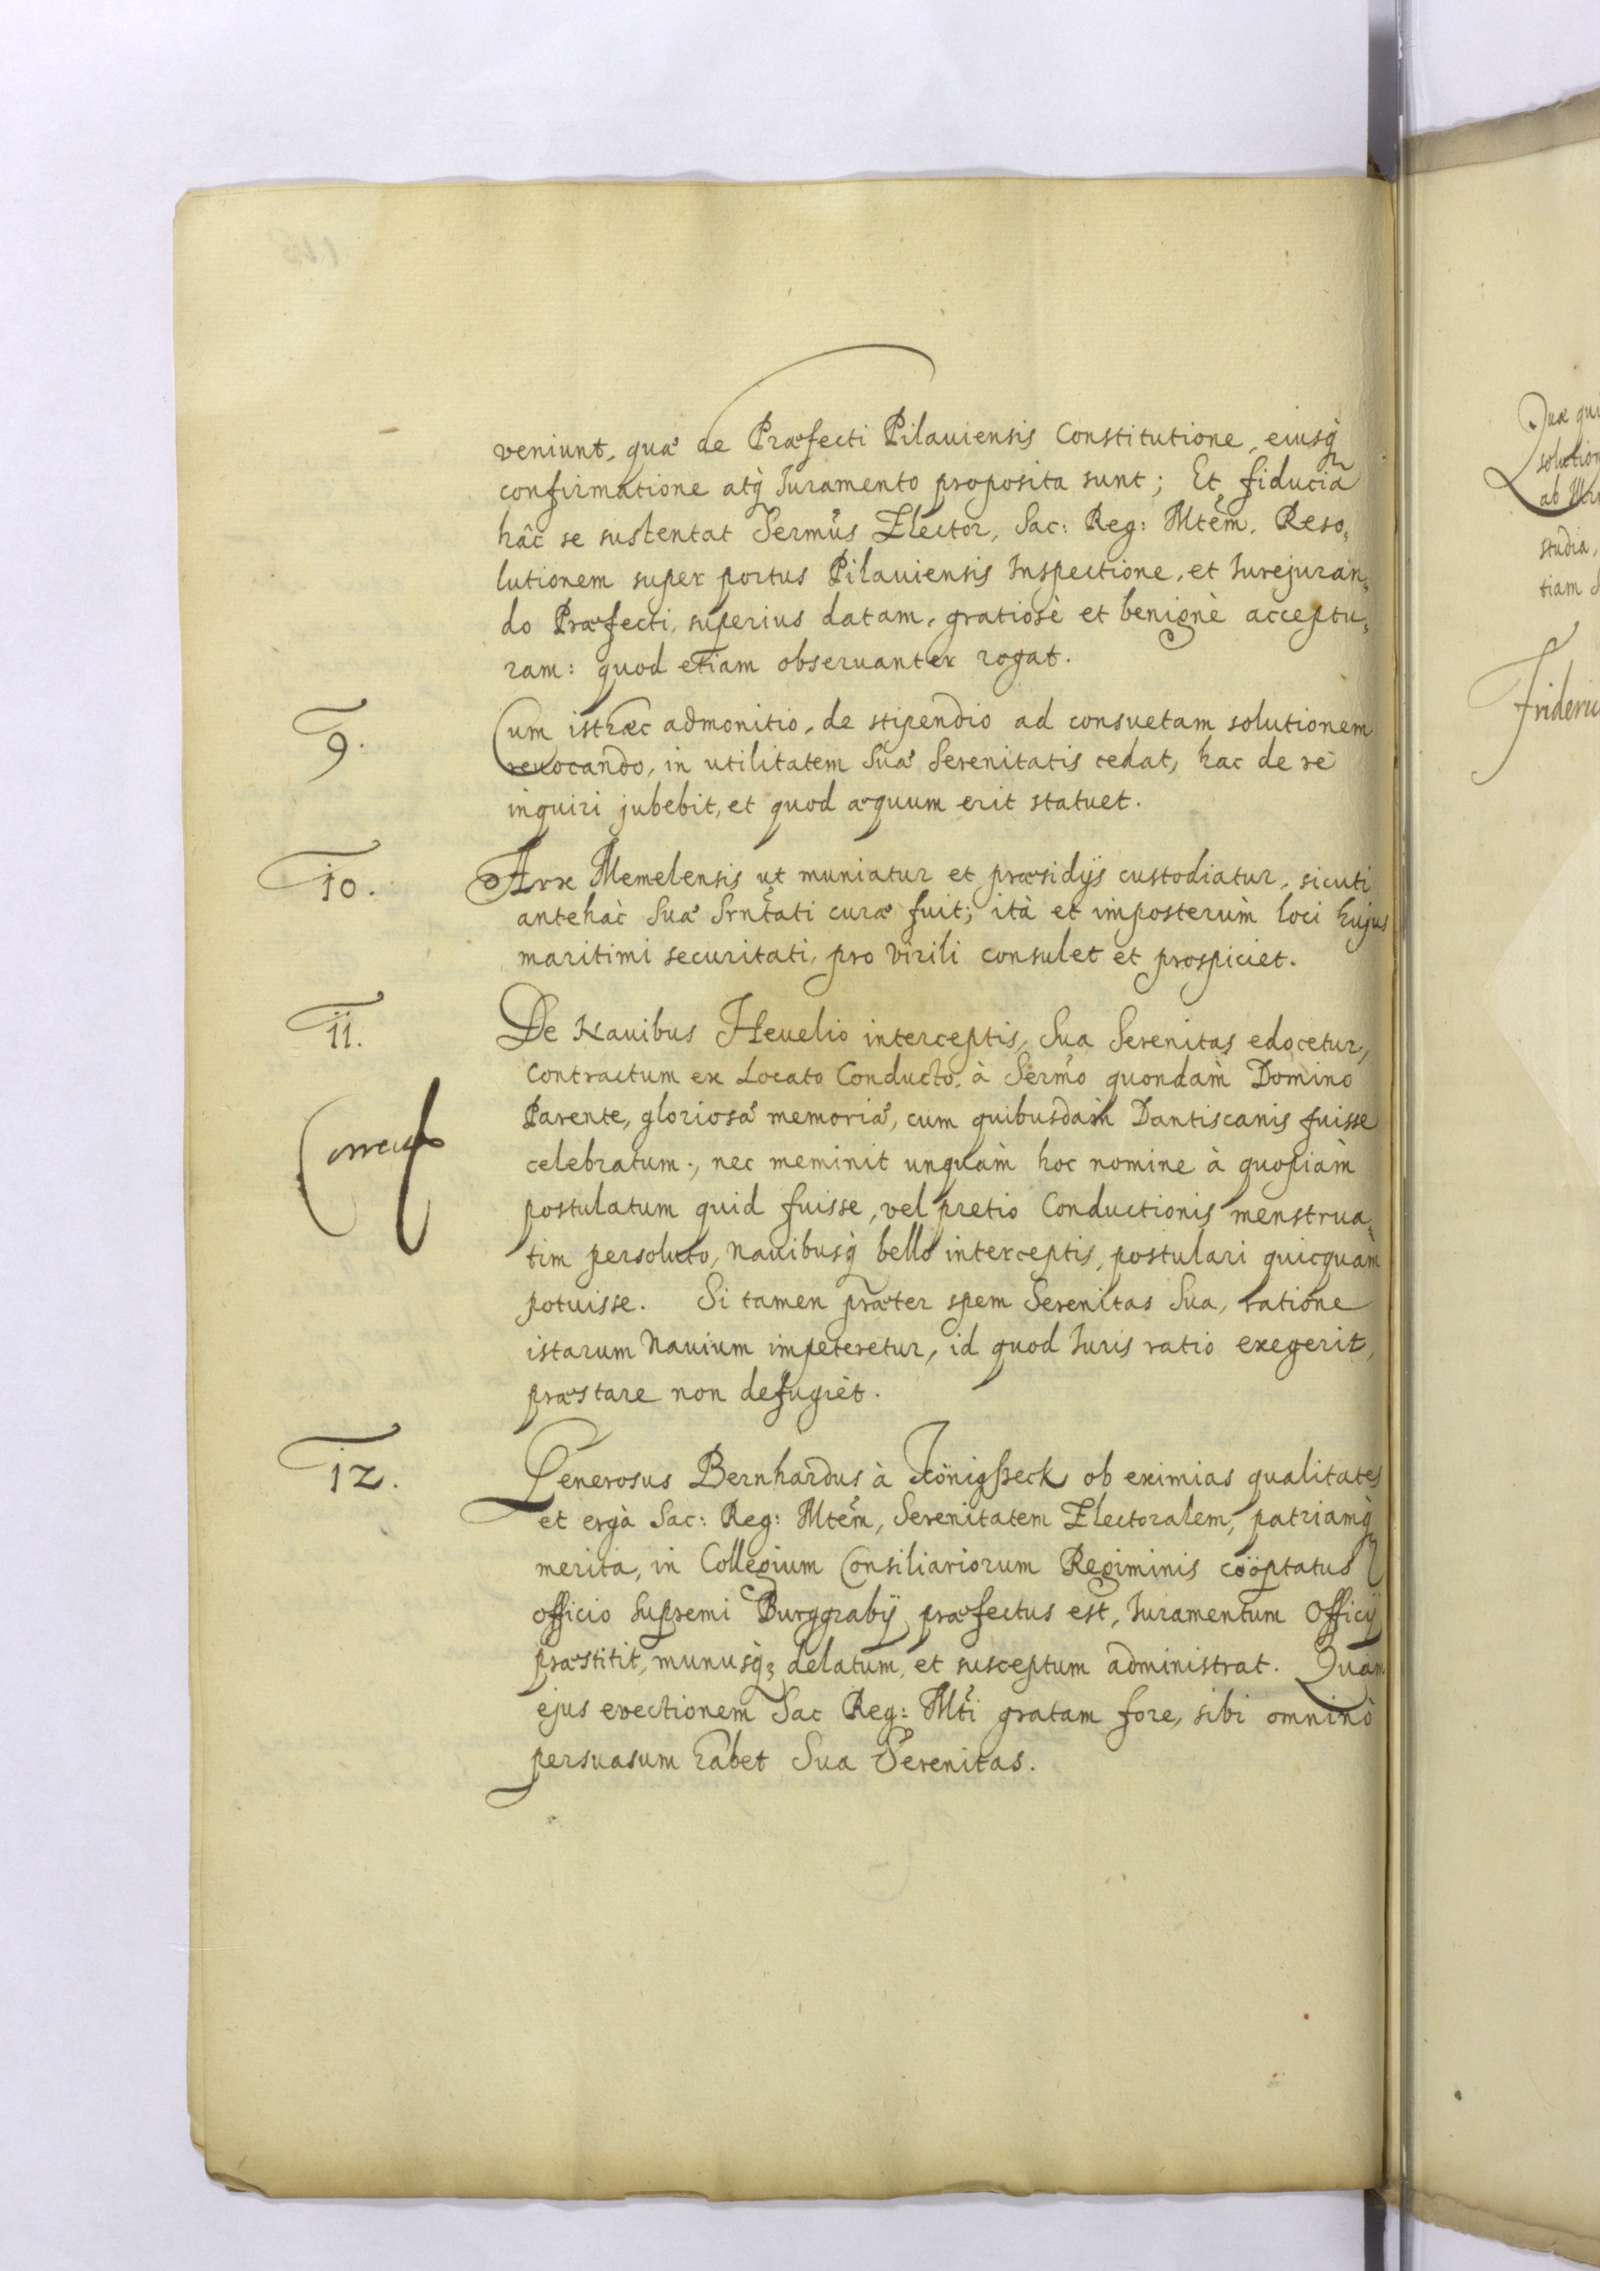 veniunt, quæ de Præfecti Pilauiensis Constitutione, eiusq́
confirmatione atq́ Juramento proposita sunt; Et fiducia
hâc se sustentat Sermũs Elector, Sac: Reg: Mtẽm, Reso„
lutionem super portus Pilauiensis Inspectione, et Jurejuran„
do Præfecti, superius datam, gratiosè et benignè acceptu„
ram: quod etiam obseruanter rogat.
9. Cum isthæc admonitio, de stipendio ad consvetam solutionem
reuocando, in utilitatem Suæ Serenitatis cedat, hac de rè
inquiri jubebit, et quod æquum erit statuet.
10. Arx Memelensis ut muniatur et præsidijs custodiatur, sicuti
antehàc Suæ Srntãti curæ fuit; ità et imposterùm loci hujus
maritimi securitati, pro virili consulet et prospiciet.
11. De Nauibus Heuelio interceptis, Sua Serenitas edocetur,
Contractum ex Locato Conducto, à Sermo quondàm Domino
Parente, gloriosæ memoriæ, cum quibusdam Dantiscanis fuisse
celebratum, nec meminit unquàm hoc nomine à quopiàm
postulatum quid fuisse, vel pretio Conductionis menstrua„
tim persoluto, Nauibusq́ bello interceptis, postulari quicquàm
potuisse. Si tamen præter spem Serenitas Sua, ratione
istarum Nauium impeteretur, id quod Juris ratio exegerit,
præstare non defugièt.
12. Generosus Bernhardus à Königßeck ob eximias qualitates
et ergà Sac: Reg: Mtẽm, Serenitatem Electoralem, patriamq́
merita, in Collegium Consiliariorum Regiminis coöptatus
officio Supremi Burggrabij præfectus est, Juramentum Officij
præstitit, munusq́; delatum, et susceptum administrat. Quam
ejus evectionem Sac Reg: Mti gratam fore, sibi omninò
persuasum habet Sua Serenitas.
Quæ
solution
ab
studia,
tiam
Frideric